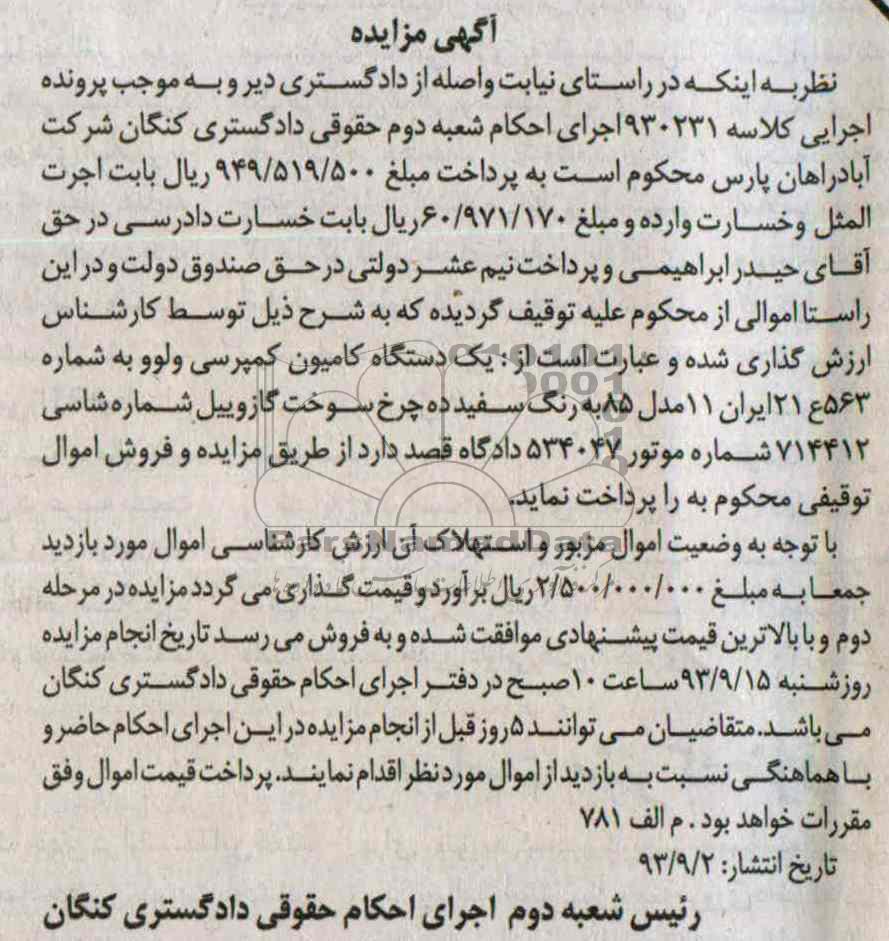 آگهی مزایده
نظر به اینکه در راستای نیابت واصله از دادگستری دیر و به موجب پرونده
اجرایی کلاسه ۹۳۰۲۳۱ اجرای احکام شعبه دوم حقوقی دادگستری کنگان شرکت
آبادراهان پارس محکوم است به پرداخت مبلغ ۹۴۹/۵۱۹/۵۰۰ ریال بابت اجرت
المثل وخسارت وارده و مبلغ ۶۰/۹۷۱/۱۷۰ ریال بابت خسارت دادرسی در حق
آقای حیدر ابراهیمی و پرداخت نیم عشر دولتی در حق صندوق دولت و در این
راستا اموالی از محکوم علیه توقیف گردیده که به شرح ذیل توسط کارشناس
ارزش گذاری شده و عبارت است از : یک دستگاه کامیون کمپرسی ولوو به شماره
۵۶۳ع ۲۱ایران ۱۱مدل ۸۵به رنگ سفید ده چرخ سوخت گازوییل شماره شاسی
۷۱۴۴۱۲ شماره موتور ۵۳۴۰۴۷ دادگاه قصد دارد از طریق مزایده و فروش اموال
توقیفی محکوم به را پرداخت نماید.
با توجه به وضعیت اموال مزبور و استهلاک آن ارزش کارشناسی اموال مورد بازدید
جمعا به مبلغ ۲/۵۰۰/۰۰۰/۰۰۰ریال برآورد و قیمت گذاری می گردد مزایده در مرحله
دوم و با بالاترین قیمت پیشنهادی موافقت شده و به فروش می رسد تاریخ انجام مزایده
روز شنبه ۹۳/۹/۱۵ساعت ۱۰صبح در دفتر اجرای احکام حقوقی دادگستری کنگان
می باشد.متقاضیان می توانند ۵روز قبل از انجام مزایده در این اجرای احکام حاضر و
با هماهنگی نسبت به بازدید از اموال مورد نظر اقدام نمایند. پرداخت قیمت اموال وفق
مقررات خواهد بود . م الف ۷۸۱
تاریخ انتشار: ۹۳/۹/۲
رئیس شعبه دوم اجرای احکام حقوقی دادگستری کنگان
ParsNamadData